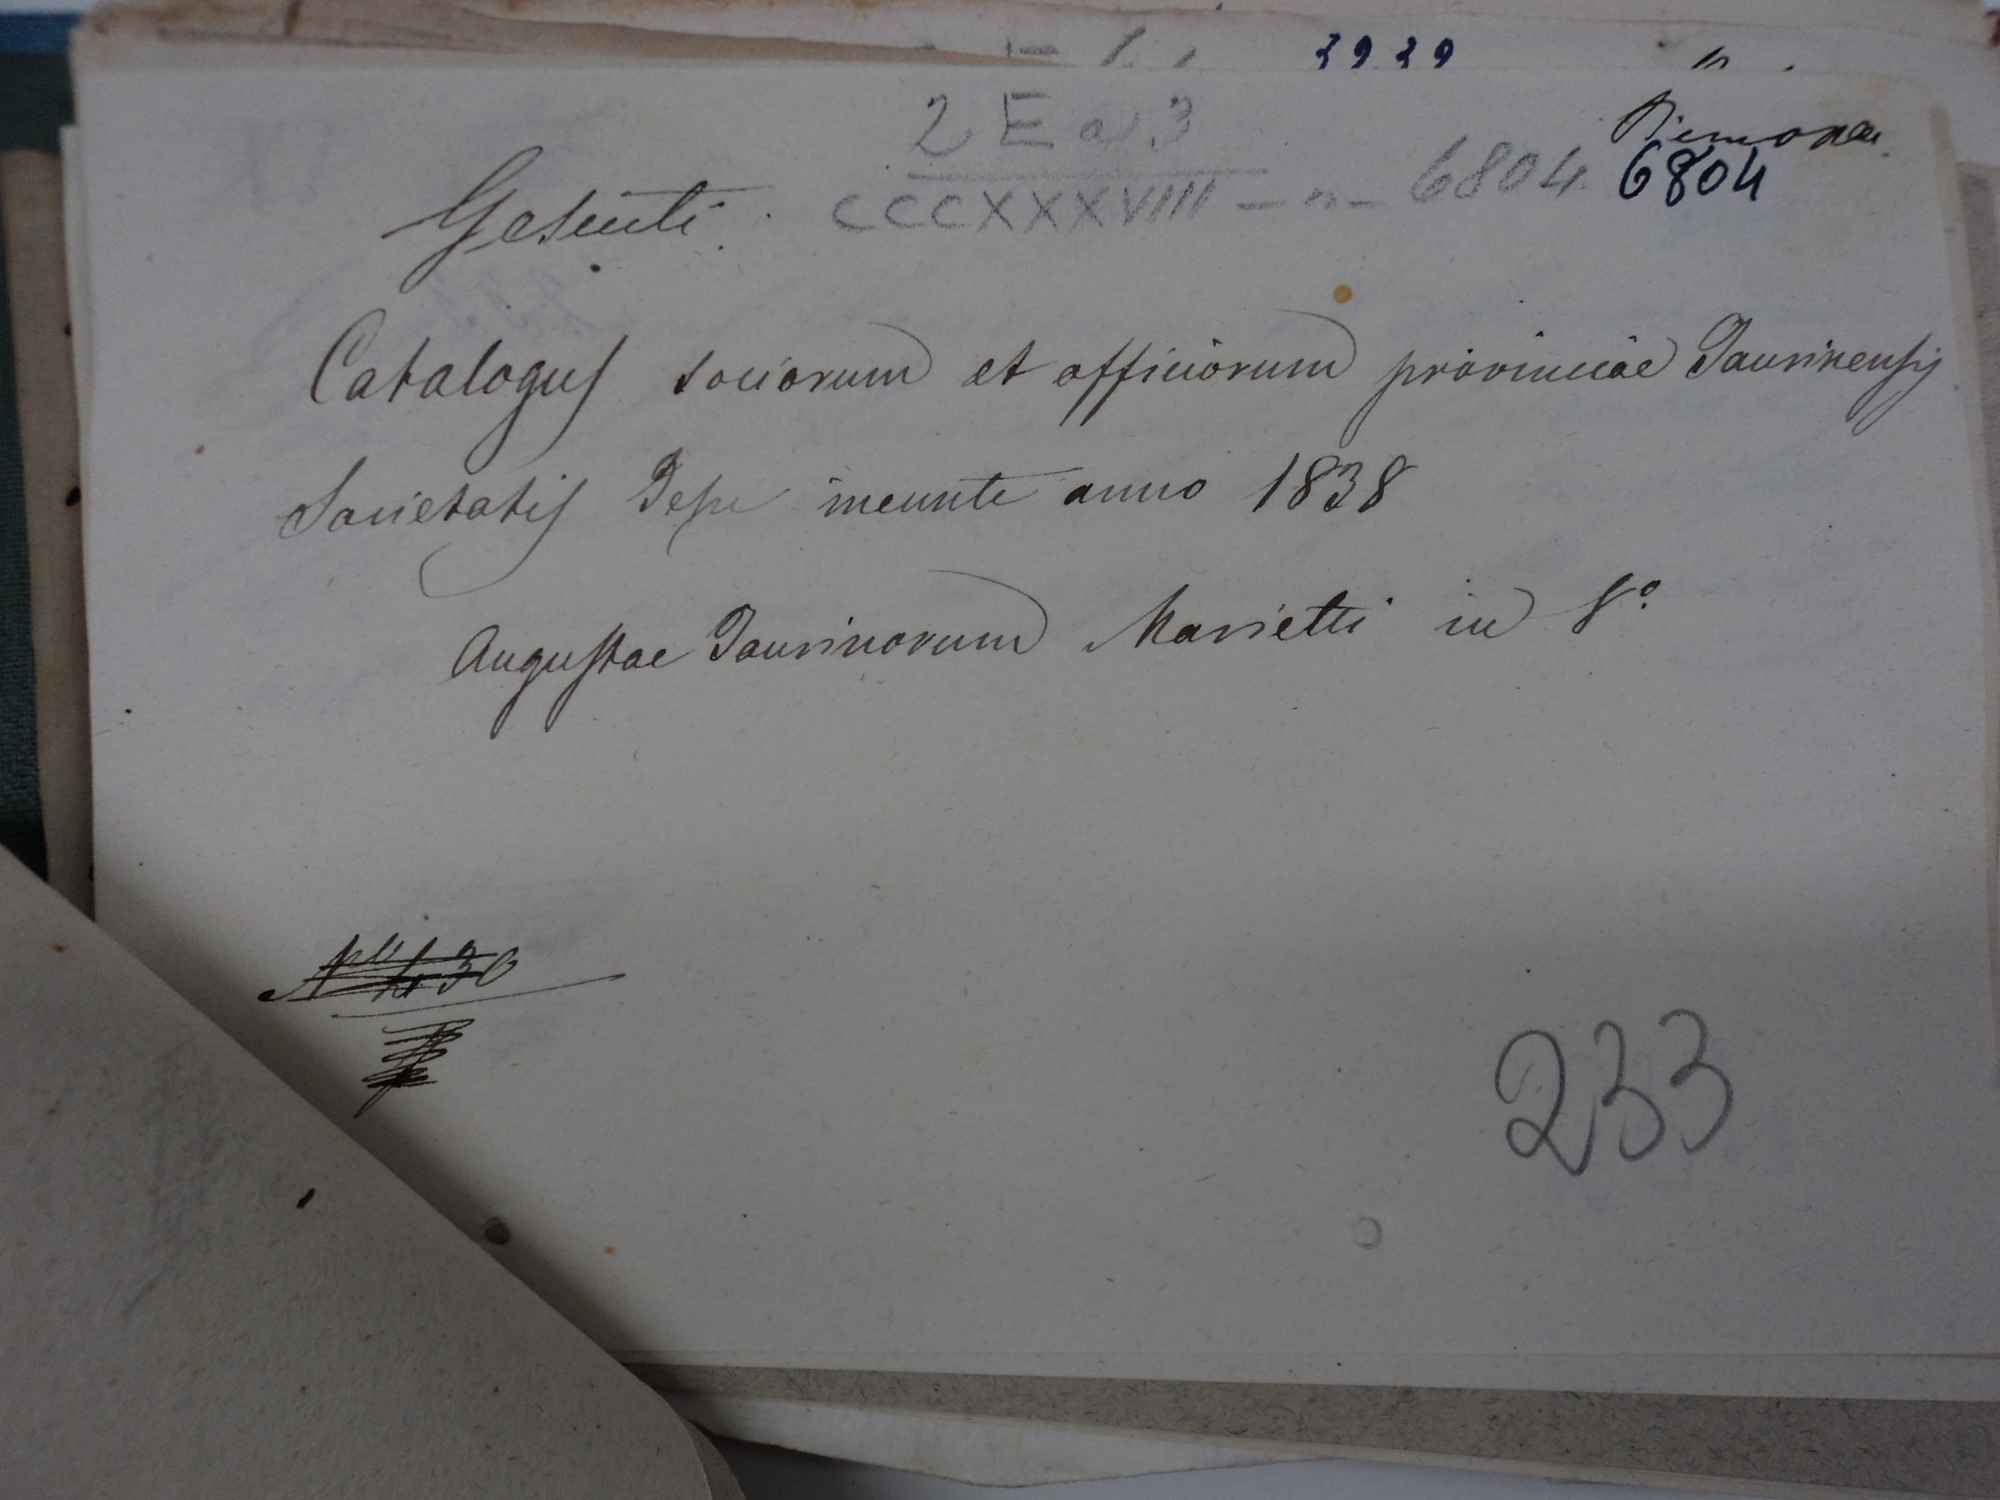 2 E a 3
CCCXXXVIII — n — 6804. 6804
Gesuiti.
Catalogus sociorum et officiorum provinciae Taurinensis
Societatis Jesu ineunte anno 1838
Augustae Taurinorum Marietti in 8º
233